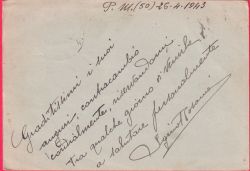 P. M. (50) 26-4-1943
Graditissimi i suoi
auguri, contraccambio
cordialmente, riservandomi
tra qualche giorno
a salutare personalmente